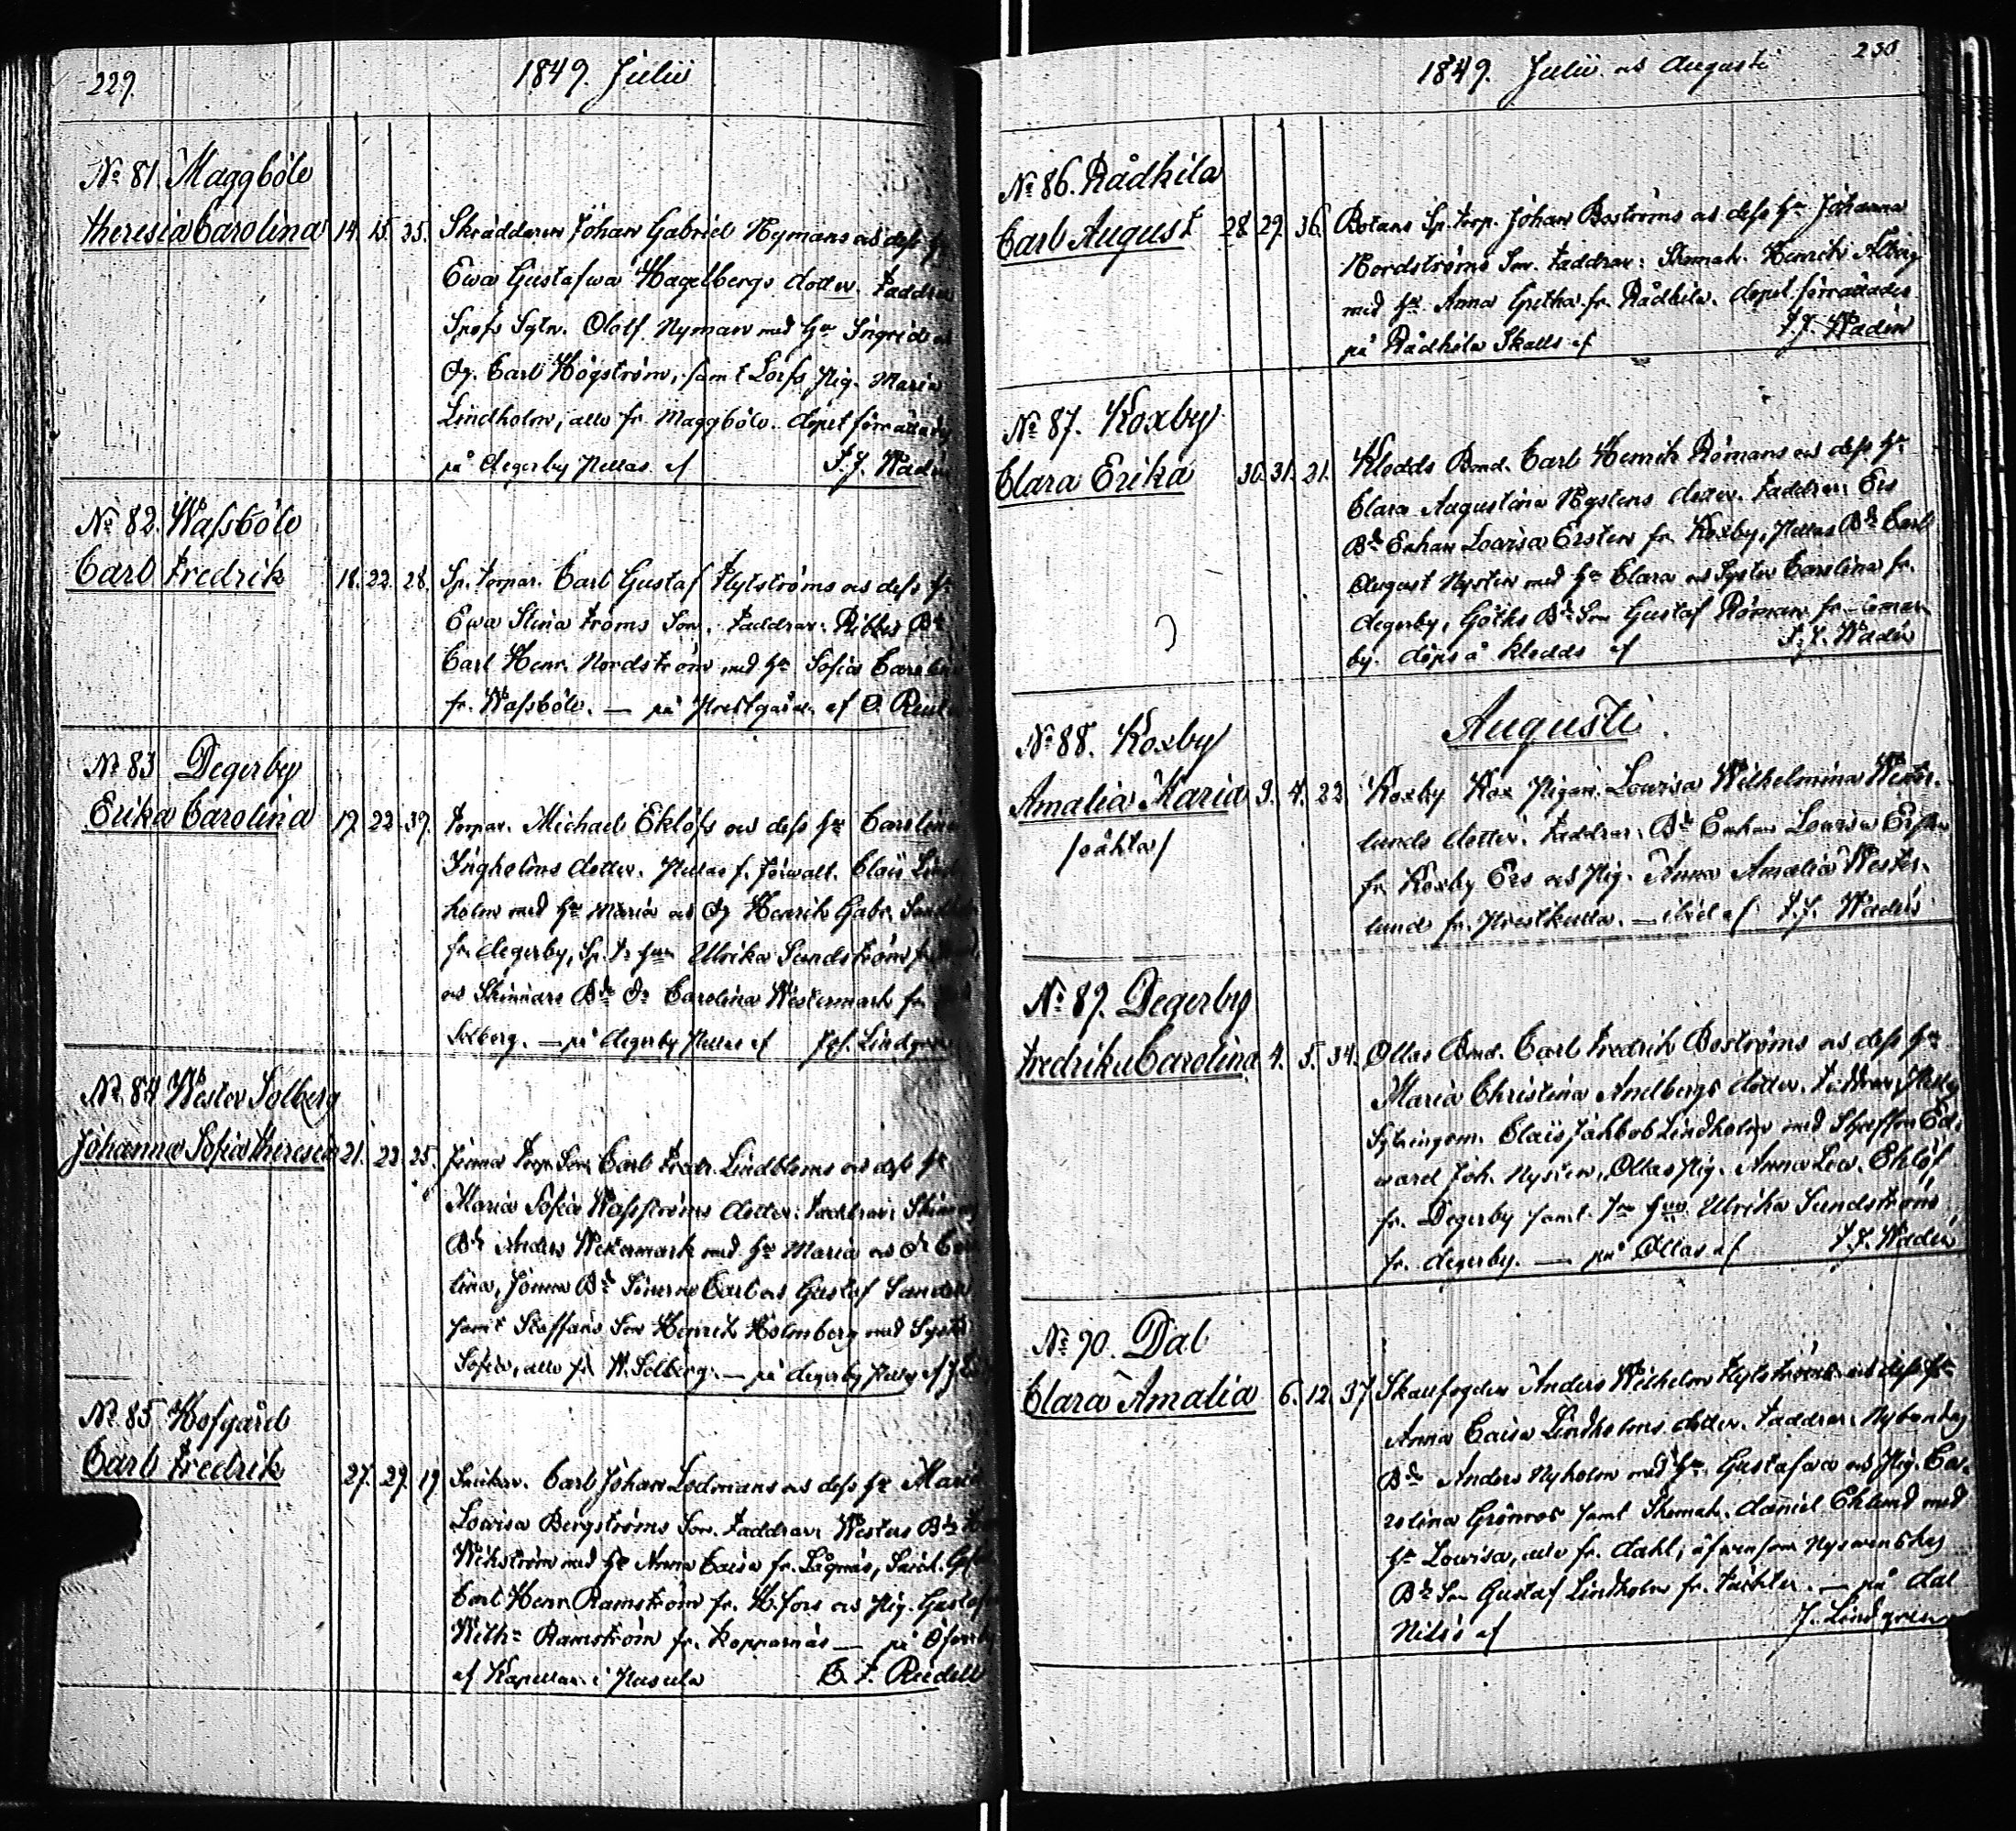 229.
1849. Julii
No 81. Maggböle
Theresia Carolina 14. 15. 35. Skräddaren Johan Gabriel Nymans och dess h:u
Ewa Gustafwa Hagelbergs dotter. Faddrar
Sytn. Olof Nyman med h:u Ingrid och
Dg. Carl Högström, samt Pig. Maria
Lindholm, alla fr. Maggböle. döpet förrättades
på degerby Pellas af F. J. Wadén
No 82. Wassböle
Carl Fredrik 18. 22. 28. Sp. torpar. Carl Gustaf Flytströms och dess h:u
Ewa Stina Ströms Son. Faddrar: Ribbes Bd
Carl Henr. Nordström med h:u Sofia
fr. Wassböle. — på Prestgård. af
No 83 Degerby
Erika Carolina 19. 22. 39. torpar. Michael Eklöfs och dess h:u Carolina
Ingholms dotter. Pellas f. förwalt. Claës Lind
holm med h:u Maria och Dg Henrik Gabr.
fr. degerby, Ulrika Sundström
och Skinnars Bd Dr Carolina Westermark fr.
Solberg. — på degerby Pellas af Jos. Lindgren
No 84 Wester Solberg
Johanna Sofia Theresia 21. 22. 25. Torp. Son Carl Fredr. Lindbloms och dess h:u
Maria Sofia Wasströms dotter: Faddrar:
Bd Anders Westermark med h:u Maria och Dr Caro
lina, Bd Sönerne Carl och Gustaf
samt Staffans Son Henrik Holmberg med Syster
Sofia, alla fr. W. Solberg. — på degerby Pellas af
No 85 Hofgård
Carl Fredrik 27. 29. 19 Snickar. Carl Johan Lodmans och dess h:u Maria
Lovisa Bergströms Son. Faddrar: Westers Bd
Wikström med h:u Anna Caisa fr. Lågnäs, Snick. Ges
Carl Henr. Ramström fr. H:fors och Pig. Gustafwa
Wilh:a Ramström fr. Kopparnäs — på
af Kapellan. i Pusula C. F. Reidell
1849. Julii och Augusti
230.
No 86. Rådkila
Carl August 28 29. 36. Botans Sp. torp. Johan Boströms och dess h:u Johanna
Nordströms Son. Faddrar: Skomak. Henrik
med h:u Anna Gretha fr. Rådkila. döpet förrättades
på Rådkila Skatts af F. J. Wadén
No 87. Koxby
Clara Erika 30. 31. 21. Klodds Bond. Carl Henrik Römans och dess h:u
Clara Augustina Nystens dotter. Faddrar: Ers
Bd Enkan Lovisa Ersten fr. Koxby, Pellas Bd Carl
August Nysten med h:u Clara och Syster Carolina fr.
degerby, Göths Bd Son Gustaf Röman fr.
by. döps å Klodds af F. J. Wadén
Augusti
No 88. Koxby
Amalia Maria 3. 4. 22 Koxby Kox Pigan Lovisa Wilhelmina Wester-
/oäkta/
lunds dotter. Faddrar: Bd Enkan Lovisa Ersten
fr. Koxby Ers och Pig. Anna Amalia Wester-
lund fr. Prestkulla. — af F. J. Wadén
No 89. Degerby
Fredrika Carolina 4. 5. 34. Ollas Bond. Carl Fredrik Boströms och dess h:u
Maria Christina Andbergs dotter. Faddrar: Pellas
Sytningsm. Claës Jakob Lindholm med Ed-
ward Joh. Nysten, Ollas Pig. Anna Lov. Eklöf
fr. Degerby samt Ulrika Sundströms
fr. degerby. — på Ollas af F. J. Wadén
No 90. Dal
Clara Amalia 6. 12. 37 Skallfogden Anders Wilhelm Flytströms och dess h:u
Anna Caisa Lindholms dotter. Faddrar: Nybondas
Bd Anders Nyholm med h:u Gustafwa och Pig. Ca-
rolina Grönros samt Skomak. Daniel Eklund med
h:u Lowisa, alla fr. dahl, äfwensom Nyswenskas
Bd Son Gustaf Lindholm fr. Täckter. — på dal
Nissis af J. Lindgren